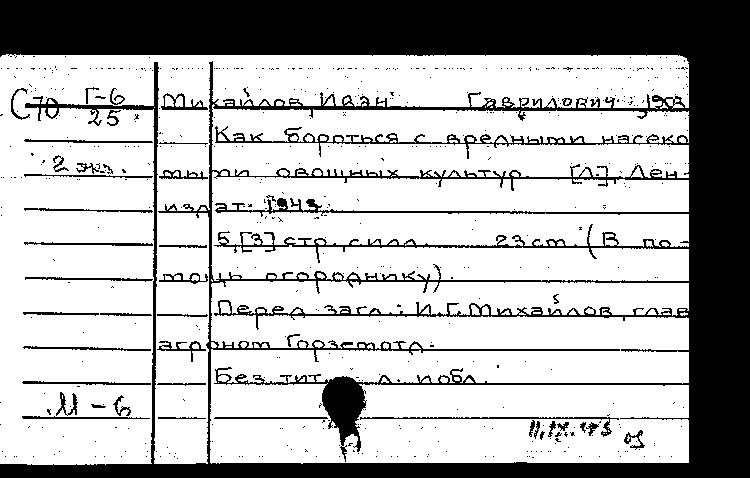 С70 Г-6
25
Михайлов, Иван Гаврилович, 1903
Как бороться с вредными насеко
2 экз.
мыми овощных культур. [Л.], Лен-
издат, 1943.
5,[3] стр., с илл. 23 см. (В по-
мощь огороднику).
Перед загл.: И.Г. Михайлов, глав
агроном Горземотд.
Без тит. л. и обл.
М-6